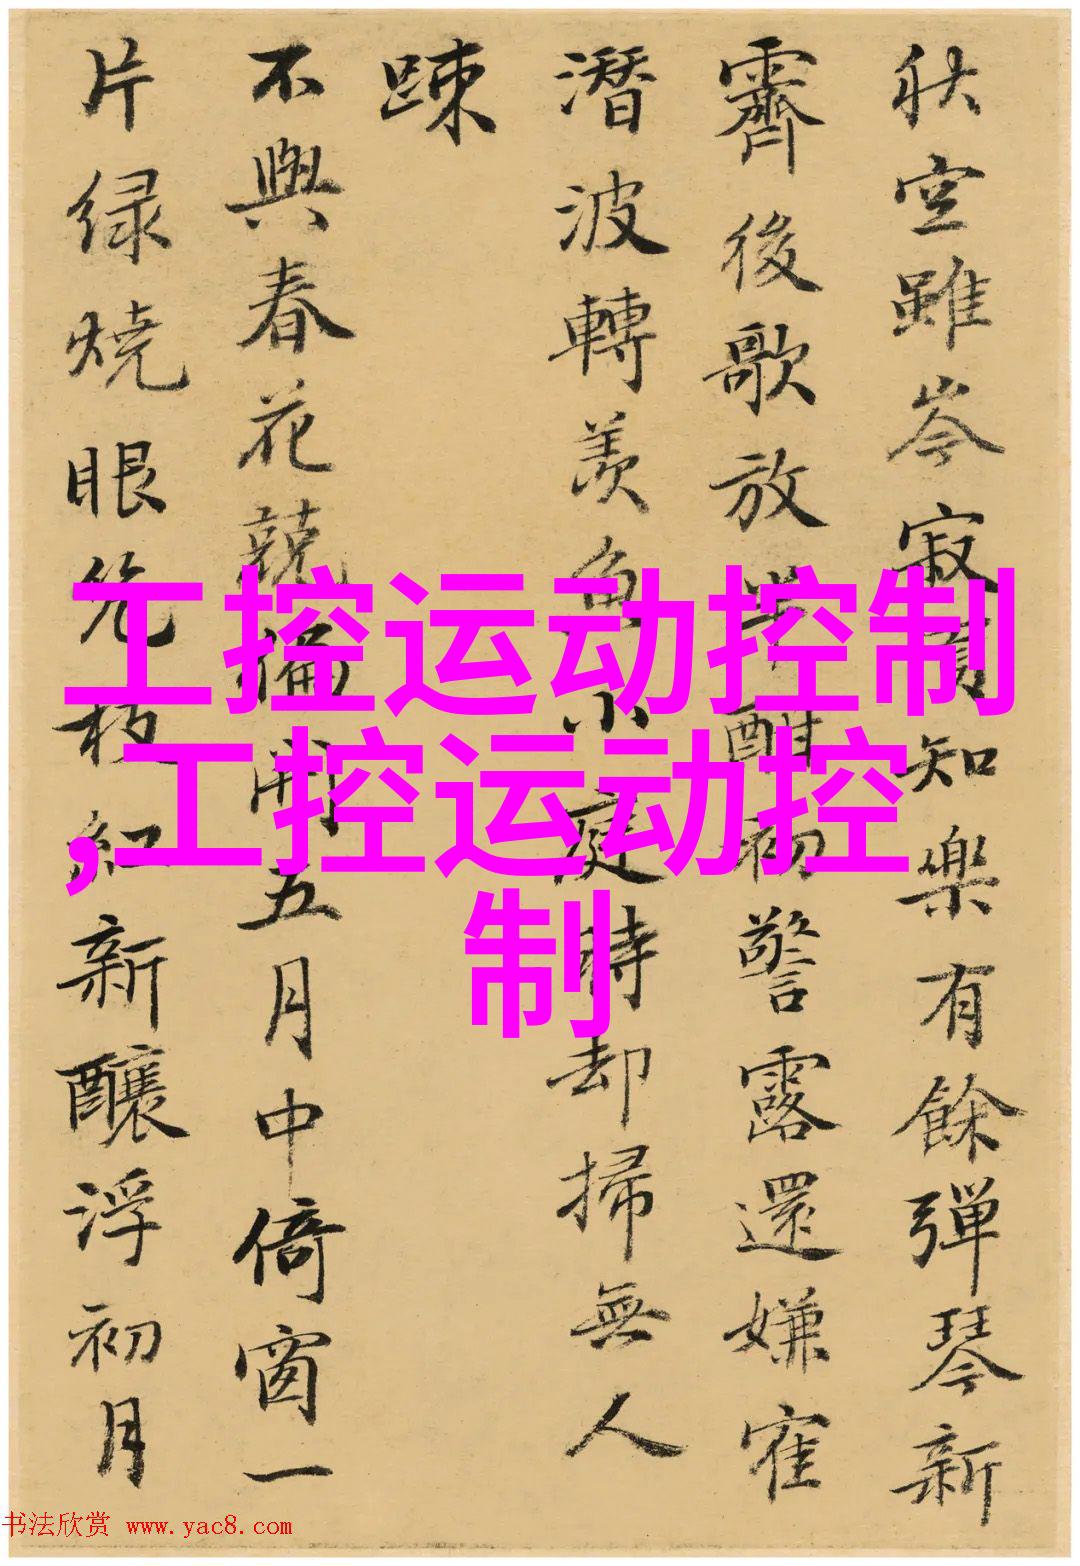 秋空雖岑寂知樂有餘彈琴新
霽後歌放酣初警露還嫌寉
潛波轉羨魚小庭時却掃無人
踈
不與春花競偏開五月中倚窗一
片緑燒眼幾枝紅新釀浮初月
工控运动控制
,工控运动控
制
书法欣赏 www.yac8.com